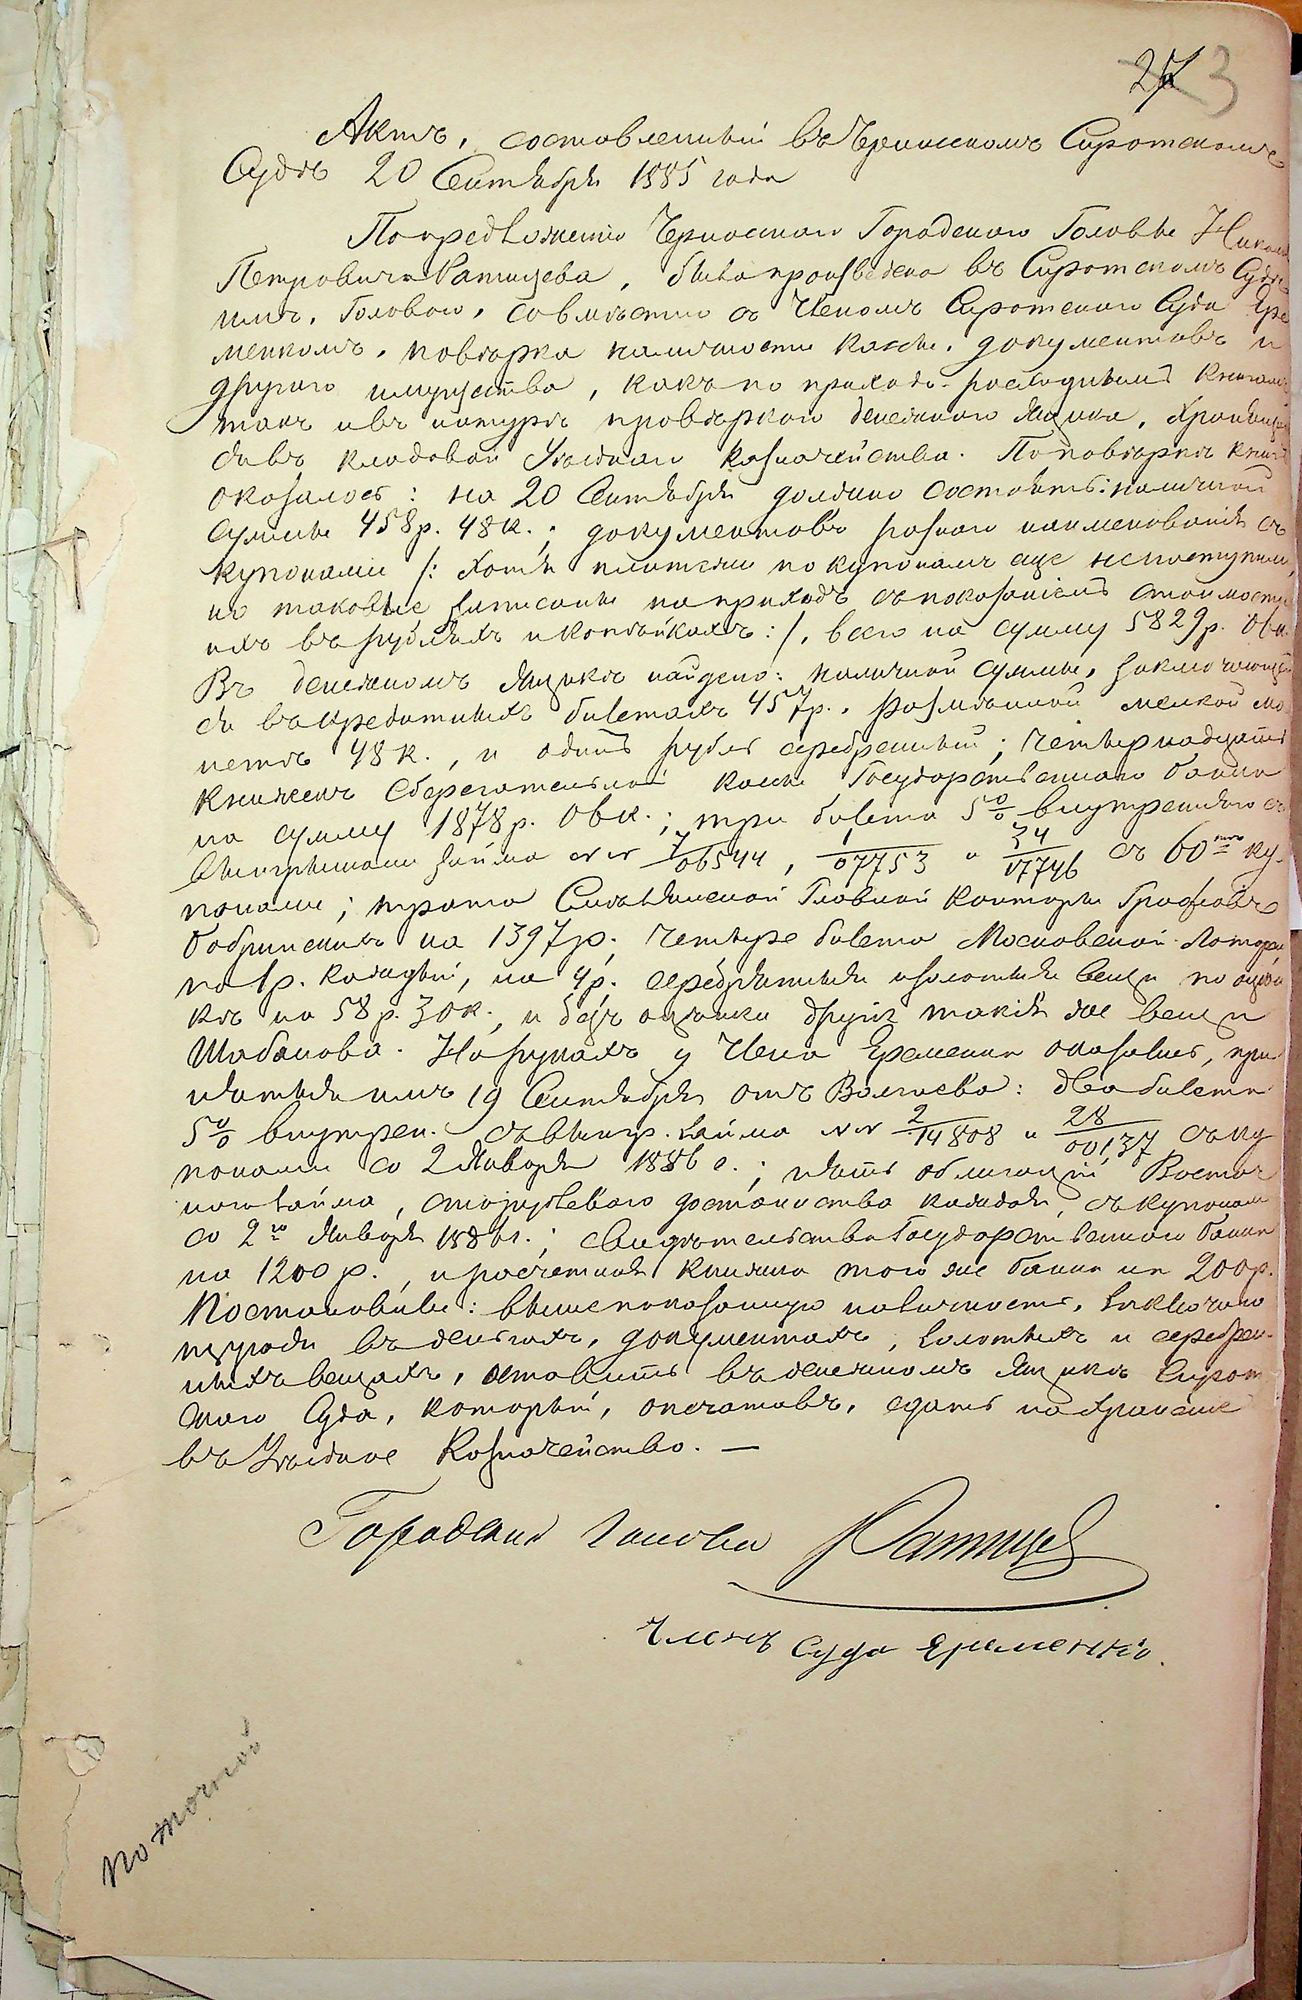 27 3
Актъ, составленный въ Черкасскомъ Сиротскомъ
Судѣ 20 Сентября 1885 года
По предложенію Черкасскаго Городскаго Головы Никол
Петровича Ратищева, была произведена въ Сиротскомъ Судѣ
имъ, Головою, совмѣстно съ Членомъ Сиротскаго Суда Ере
менкомъ, повѣрка наличности кассы, документовъ и
другаго имущества, какъ по приходо-расходнымъ книгамъ
такъ и въ натурѣ провѣркою денежнаго ящика, хранящаго
ся въ кладовой Уѣзднаго Казначейства. По повѣркѣ книгъ
оказалось: на 20 Сентября должно состоять: наличной
суммы 458 р. 48 к.; документовъ разнаго наименованія съ
купонами /: хотя платежи по купонамъ еще не поступили,
но таковые записаны на приходъ съ показаніемъ стоимости
ихъ въ рубляхъ и копѣйкахъ :/, всего на сумму 5829 р.
Въ денежномъ ящикѣ найдено: наличной суммы, заключающей
ся въ кредитныхъ билетахъ 457 р., размѣнной мелкой мо
нетѣ 48 к., и одинъ рубль серебренный; четырнадцать
книжекъ Сберегательной кассы Государственнаго банка
на сумму 1878 р. 06 к.; три билета 5% внутренняго съ
выигрышами займа №№ 7/06544, 1/07753 и 34/17746 съ 60тью ку-
понами; трата Смѣлянской Главной Конторы Графовъ
Бобринскихъ на 1397 р.; четыре билета Московской Лотереи
по 1 р. каждый, на 4 р. серебрянныя и золотыя вещи по оцѣн
кѣ на 58 р. 30 к., и безъ оцѣнки другія такія же вещи
Шабанова. На рукахъ у Члена Еременка оказались, при
нятыя имъ 19 Сентября отъ Волгаева: два билета
5% внутрен. съ выигр. займа №№ 2/14808 и 28/00137 съ ку
понами со 2 Января 1886 г.; пять облигацій Восточ
наго займа, сторублеваго достоинства каждая, съ купонами
со 2го Января 1886 г.; свидѣтельство Государственнаго банка
на 1200 р., и расчетная книжка того же банка на 200 р.
Постановили: вышепоказанную наличность, заключаю
щуюся въ деньгахъ, документахъ, золотыхъ и серебрен-
ныхъ вещахъ, оставить въ денежномъ ящикѣ Сирот
скаго Суда, который, опечатавъ, сдать на храненіе
въ Уѣздное Казначейство. —
Городской Голова Ратищев
Членъ Суда Еременко.